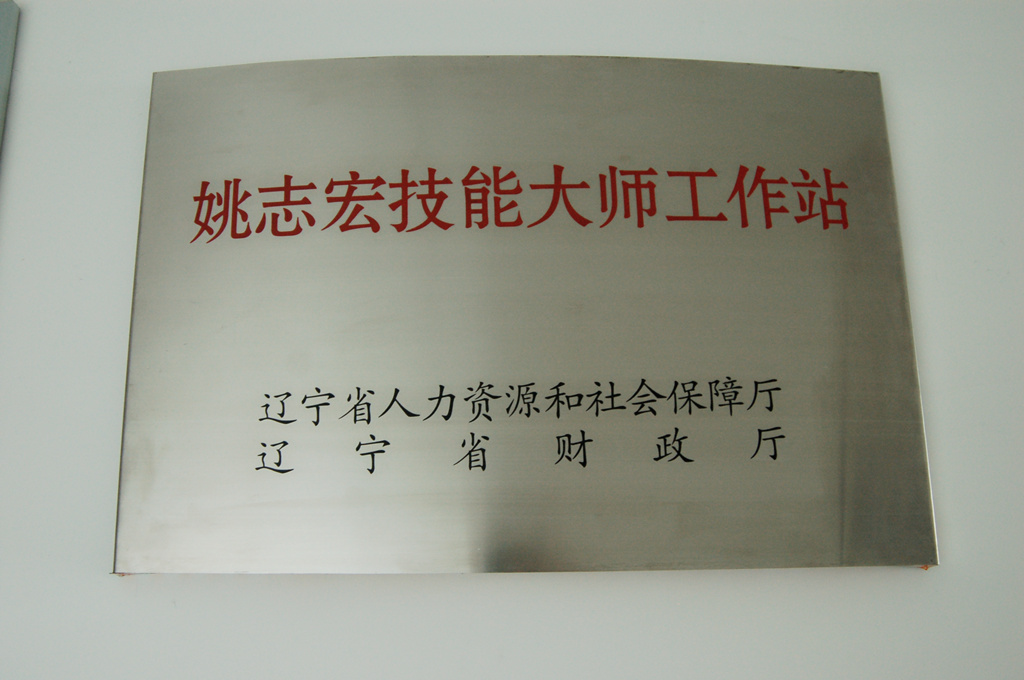 姚志宏技能大师工作站
辽宁省人力资源和社会保障厅
辽宁省财政厅